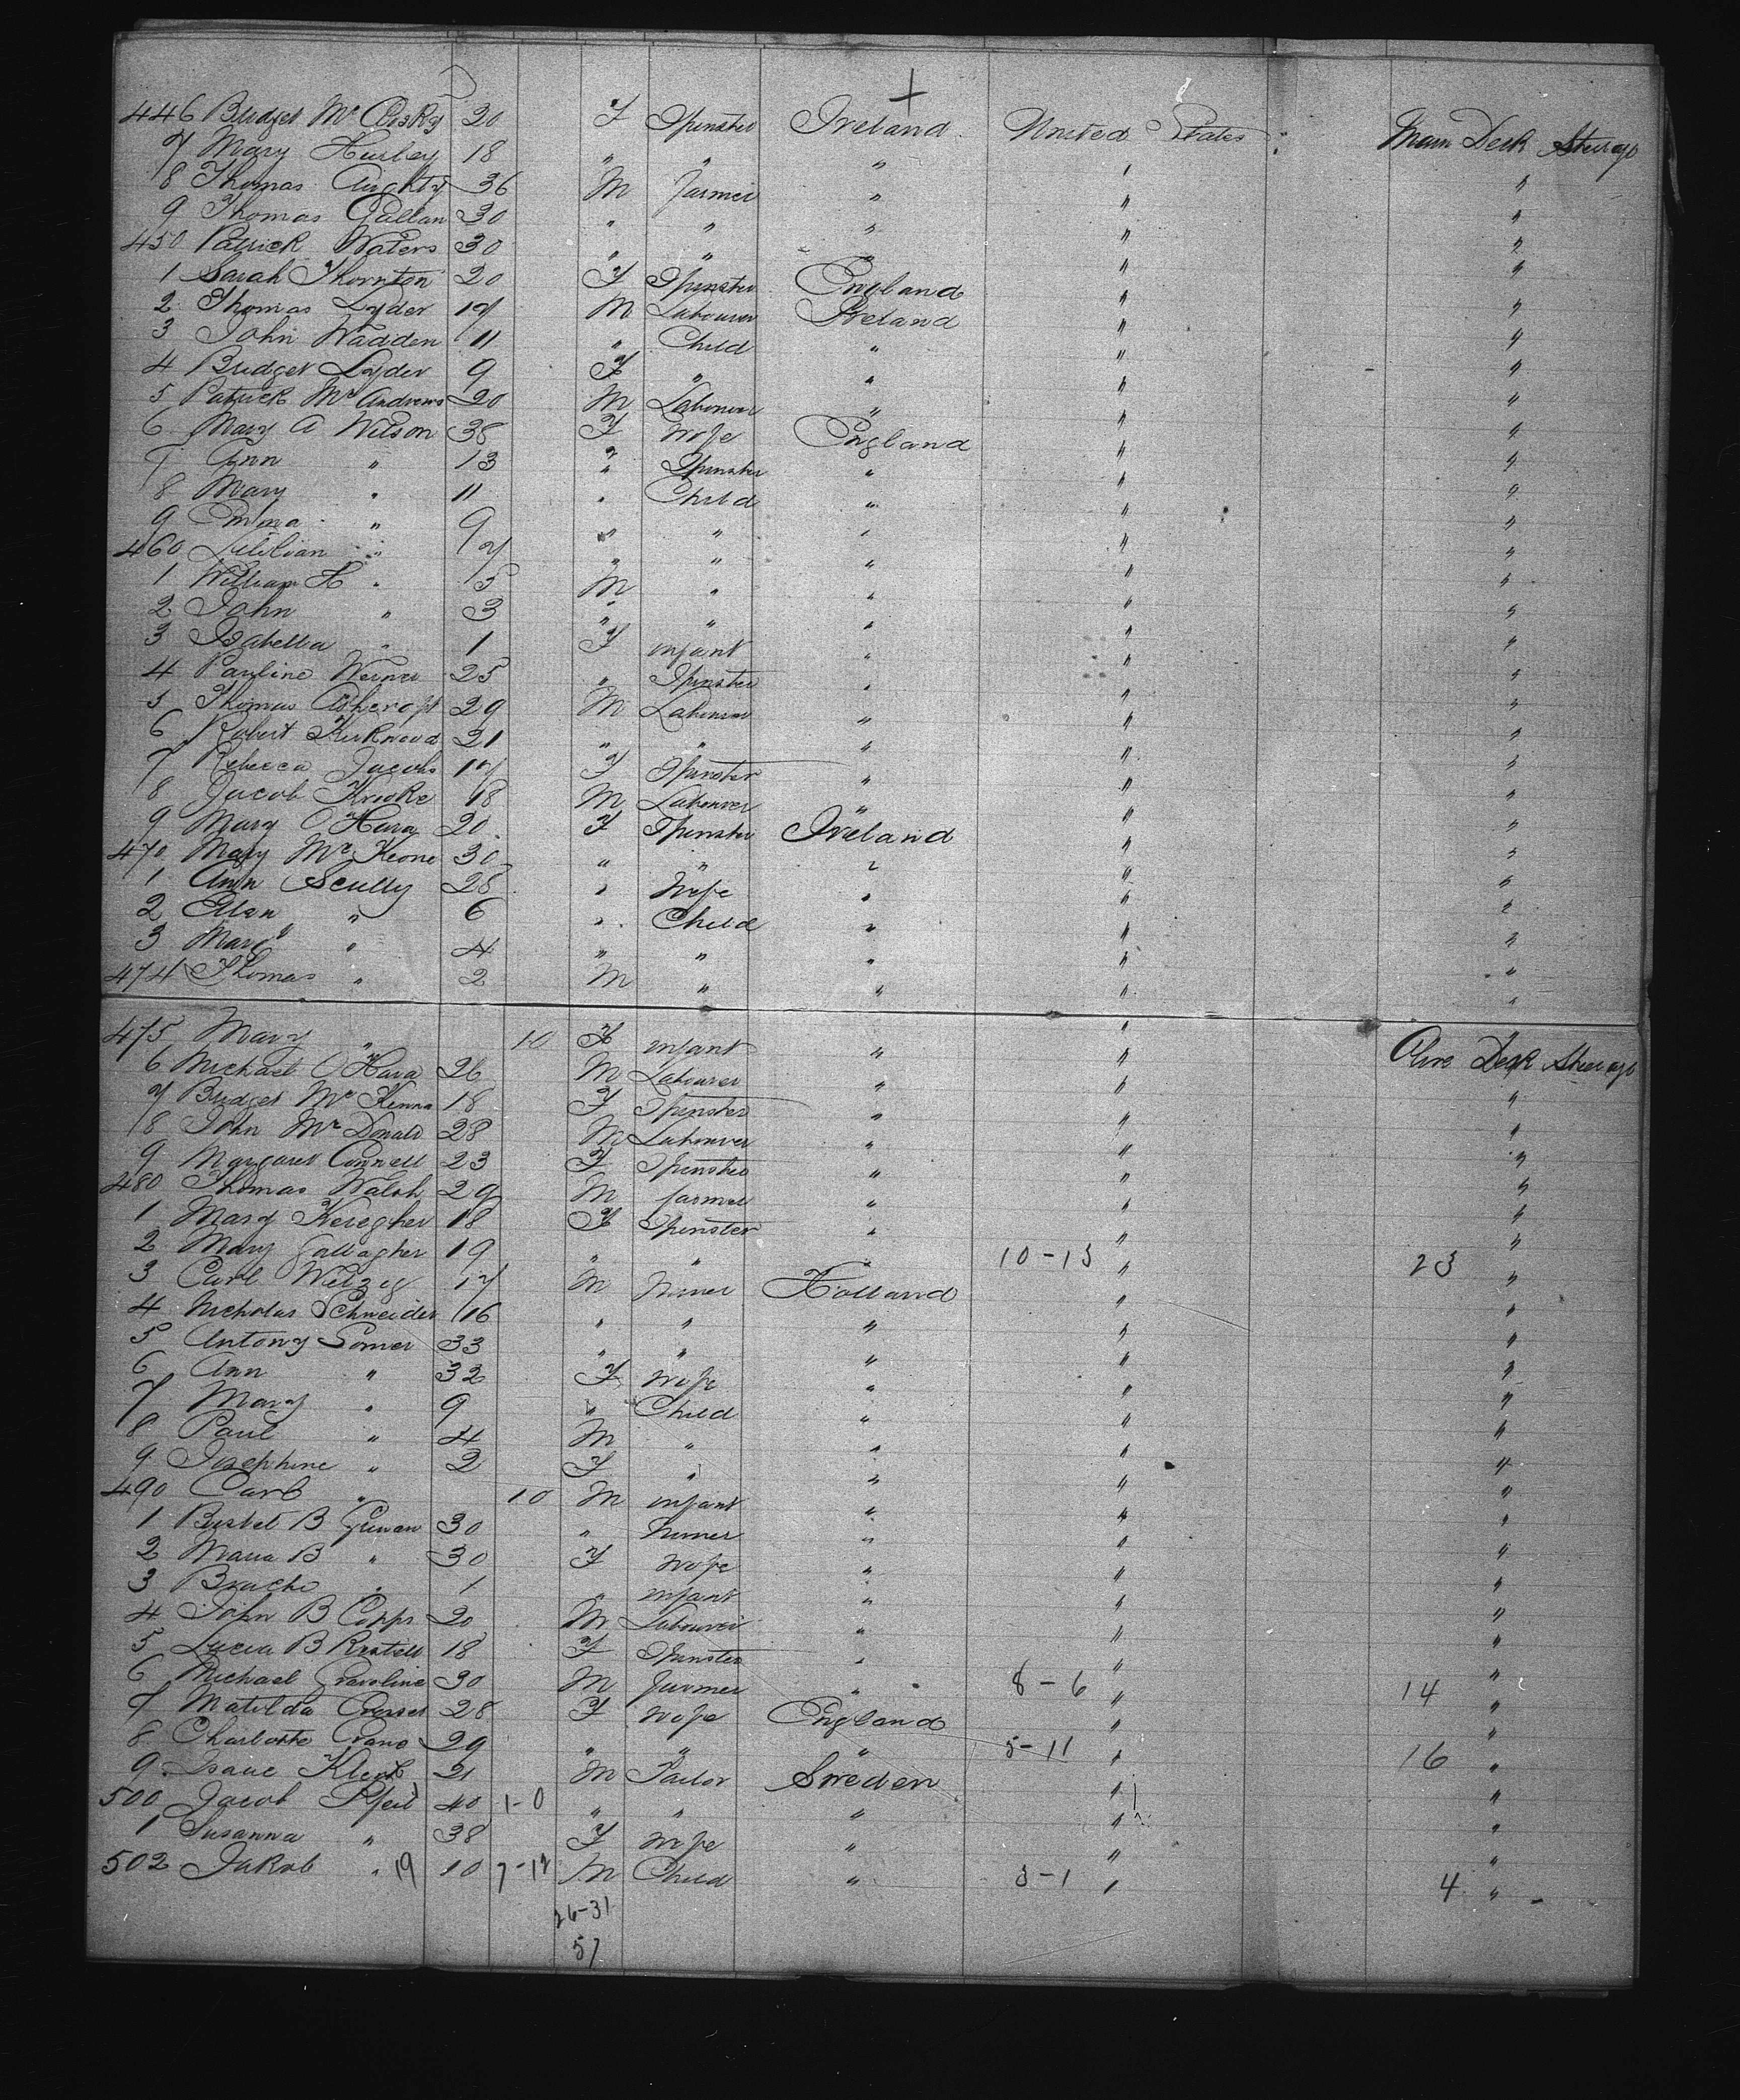 446 Bridget Mc 20 F Spinster Ireland United States Main Deck Steerage
7 Mary Hurley 18 " " " " "
8 Thomas 36 M farmer " " "
9 Thomas Gallan 30 " " " " "
450 Patrick Waters 30 " " " " "
1 Sarah Thornton 20 F Spinster England " "
2 Thomas Lyder 17 M Labourer Ireland " "
3 John Wadden 11 " Child " " "
4 Bridget Lyder 9 F " " " "
5 Patrick McAndrews 20 M Labourer " " "
6 Mary A Wilson 38 F Wife England " "
7 Ann " 13 " Spinster " " "
8 Mary " 11 " Child " " "
9 Emma " 9 " " " " "
460 Lillian " 7 " " " " "
1 William H " 5 M " " " "
2 John " 3 " " " " "
3 Isabella " 1 F infant " " "
4 Pauline Werner 25 " Spinster " " "
5 Thomas Ashcroft 29 M Labourer " " "
6 Robert Kirkwood 21 " " " " "
7 Rebecca Jacobs 17 F Spinster " " "
8 Jacob 18 M Labourer " " "
9 Mary O Hara 20 F Spinster Ireland " "
470 Mary McKeone 30 " " " " "
1 Ann Scully 28 " Wife " " "
2 Ellen " 6 " Child " " "
3 Mary " 4 " " " " "
474 Thomas " 2 M " " " "
475 Mary " 10 F infant " " Deck Steerage
6 Michael O Hara 26 M Labourer " " "
7 Bridget McKenna 18 F Spinster " " "
8 John McDonald 28 M Labourer " " "
9 Margaret Connell 23 F Spinster " " "
480 Thomas Walsh 29 M farmer " " "
1 Mary Keregher 18 F Spinster " " "
2 Mary Gallagher 19 " " " 10-13 " 23 "
3 Carl 17 M Miner Holland " "
4 Nicholas Schneider 16 " " " " "
5 Antony Somer 33 " " " " "
6 Ann " 32 F Wife " " "
7 Mary " 9 " Child " " "
8 Paul " 4 M " " " "
9 Josephine " 2 F " " " "
490 Carl " 10 M infant " " "
1 B 30 " Miner " " "
2 Maria B " 30 F Wife " " "
3 " 1 " infant " " "
4 John B Copps 20 M Labourer " " "
5 Lucia B 18 F Spinster " " "
6 Michael 30 M Farmer " 8-6 " 14 "
7 Matilda 28 F Wife England " "
8 Charlotte 29 " " " 5-11 " 16 "
9 Isaac 21 M Tailor Sweden " "
500 Jacob 40 1-0 " " " " "
1 Susanna " 38 F Wife " " "
502 Jakob " 19 10 7-12 M Child " 3-1 " 4 "
26-31
57